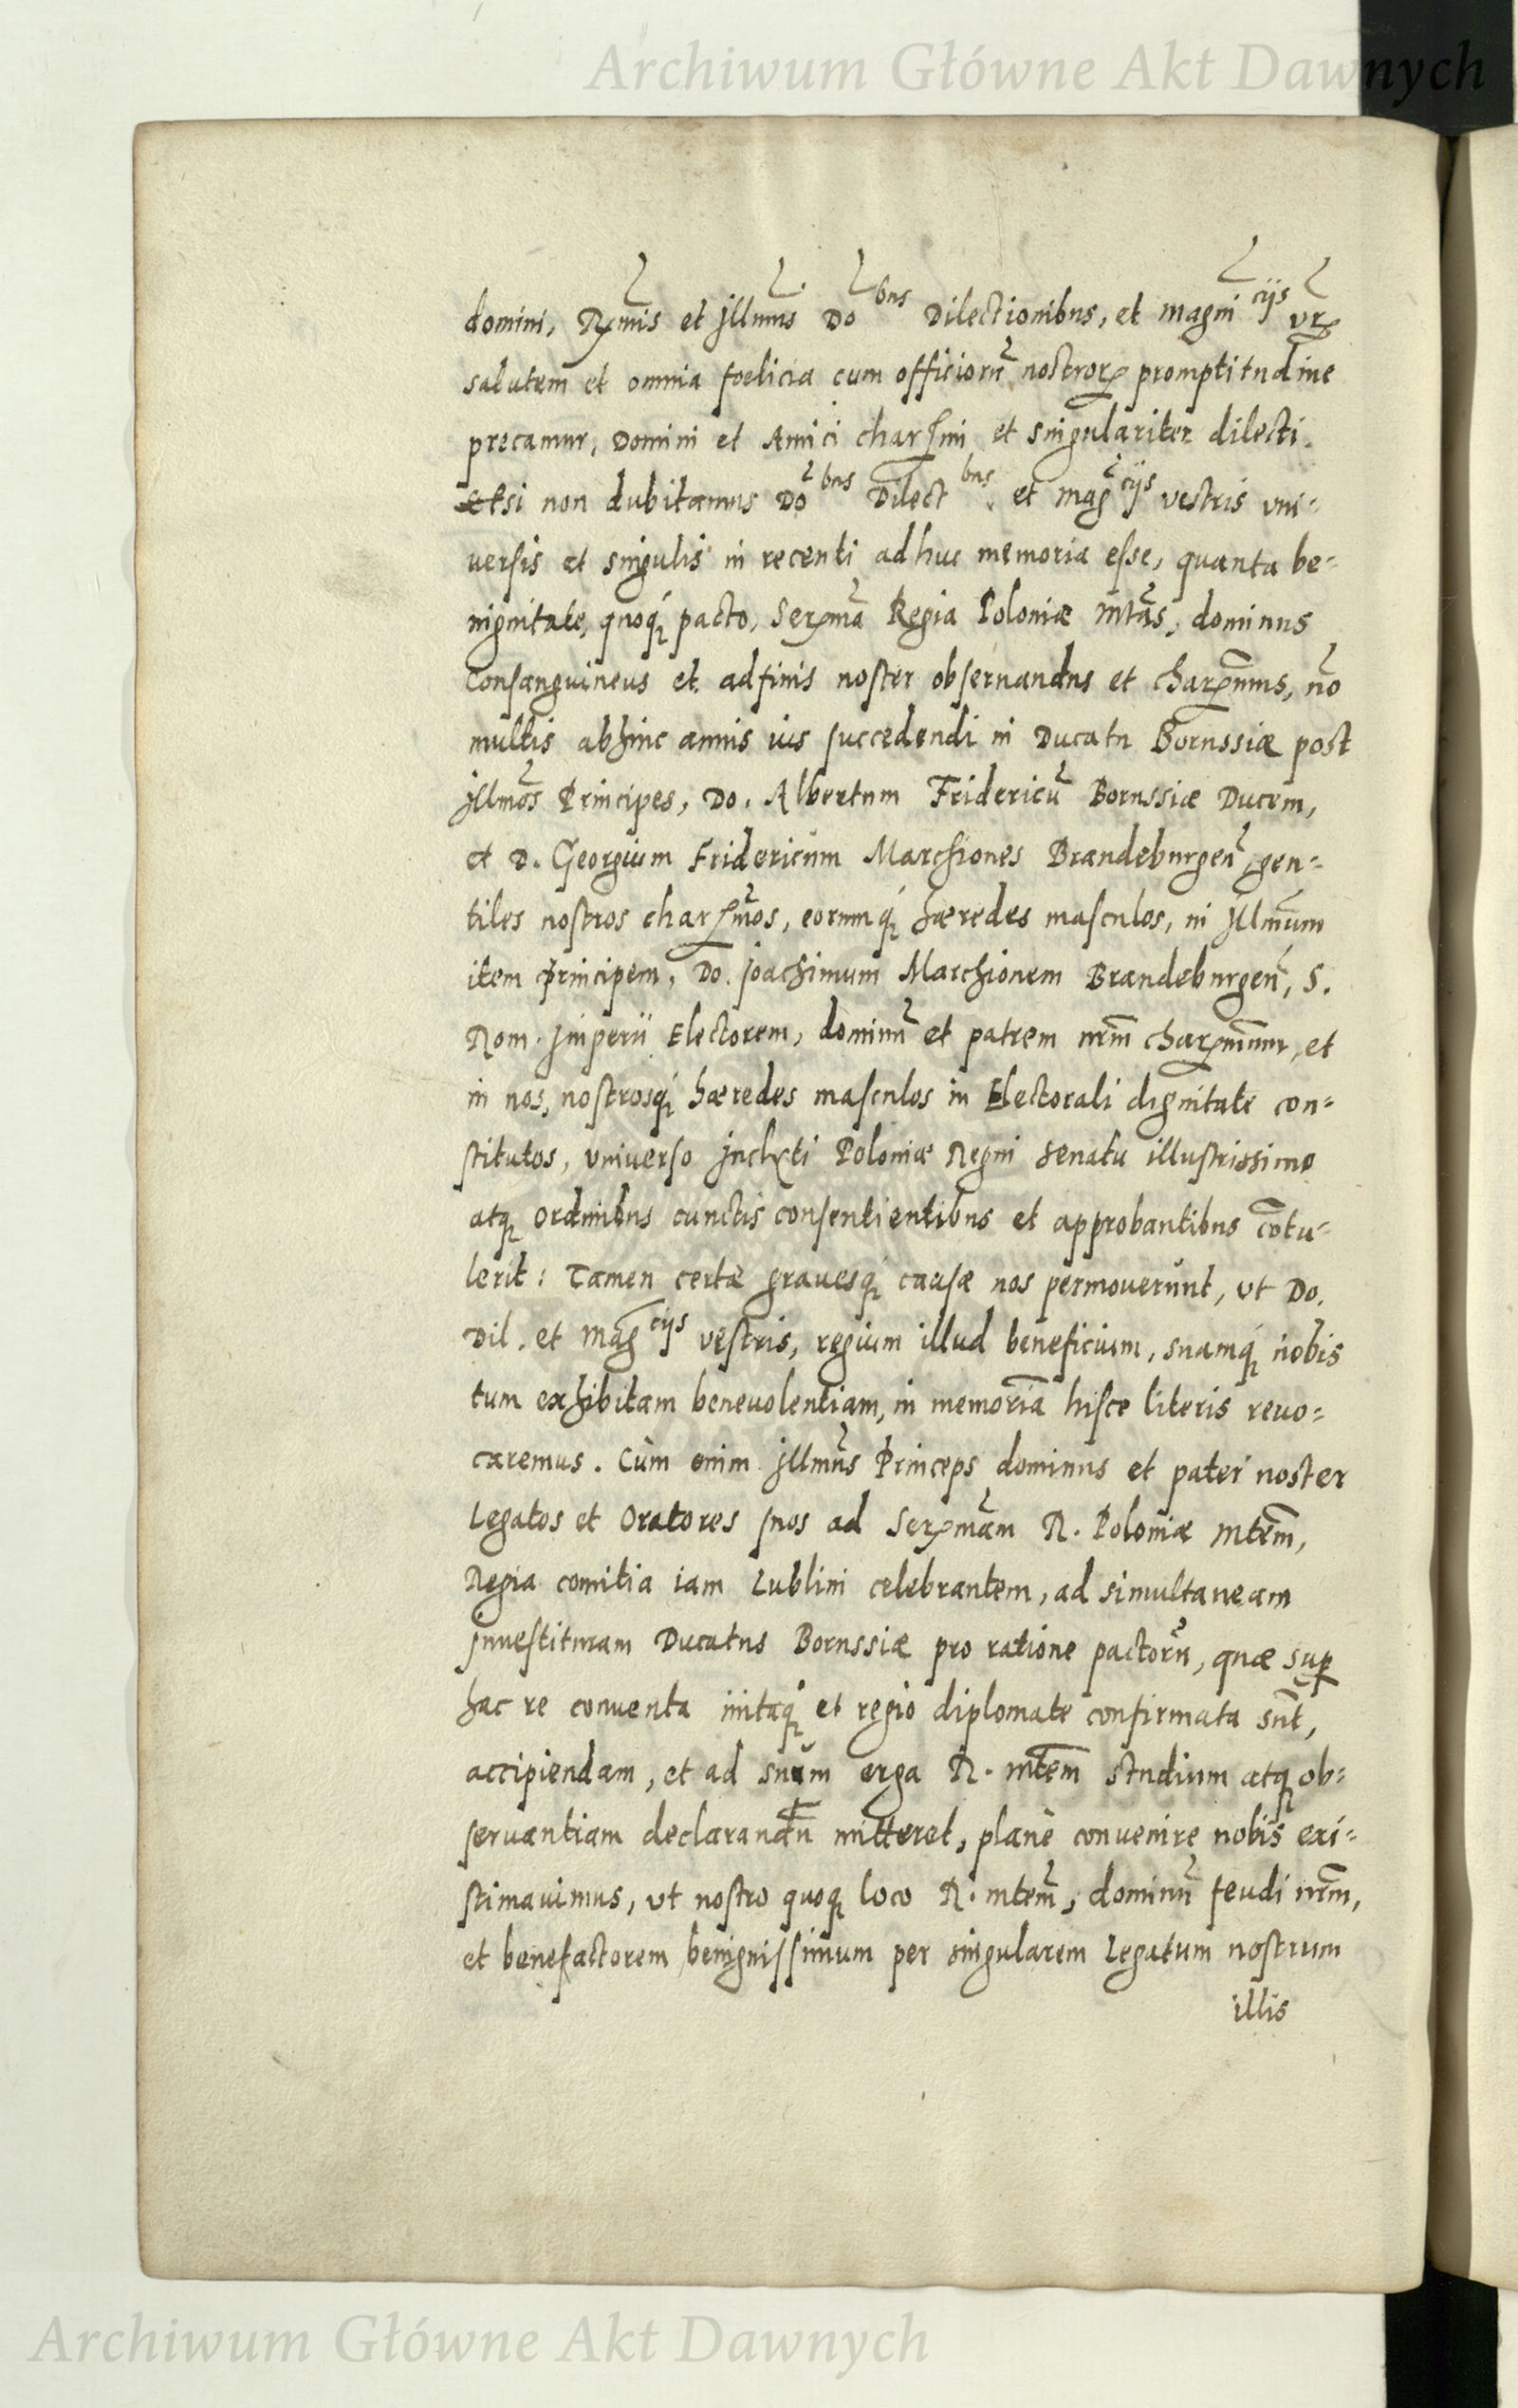 Archiwum Główne Akt Dawnych
domini, Rx̃mis et Jllmis̃ Dõbus Dilectionibus, et magñicijs vrꝫ
salutem et omnia foelicia cum officiorũ nostroꝝ promptitudine
precamur, Domini et Amici charſmi et singulariter dilecti.
Etsi non dubitamus Dõbus Dilectbus. et Mag̃cijs vestris vni-
uersis et singulis in recenti adhuc memoria esse, quanta be-
nignitate, quoq́ꝫ pacto, Serꝫmã Regia Poloniæ Mtãs, dominus
Consanguineus et adfinis noster obseruandus et charꝫmus, nõ
multis abhinc annis ius succedendi in Ducatu Borussiæ post
Jllmõs Principes, Do. Albertum Fridericũ Borussiæ Ducem,
et D. Georgium Fridericum Marchiones Brandeburgeñ, gen-
tiles nostros charſmõs, eorumq́ꝫ hæredes masculos, in Jllm̃um
item Principem, Do. Joachimum Marchionem Brandeburgeñ, S.
Rom. Jmperii Electorem, dominũ et patrem nrm̃ charꝫmum, et
in nos, nostrosq́ꝫ hæredes masculos in Electorali dignitate con-
stitutos, vniuerso Jnclyti Poloniæ Regni senatu illustrissimo
atqꝫ Ordinibus cunctis consentientibus et approbantibus cõtu-
lerit: Tamen certæ grauesq́ꝫ causæ nos permouerunt, vt Do.
Dil. et Mag̃cijs vestris, regium illud beneficium, suamq́ꝫ nobis
tum exhibitam beneuolentiam, in memoriã hisce literis reuo-
caremus. Cùm enim Jllmũs Princeps dominus et pater noster
Legatos et Oratores suos ad Serꝫmãm R. Poloniæ Mtem̃,
Regia comitia iam Lublini celebrantem, ad simultaneam
Jnuestituram Ducatus Borussiæ pro ratione pactorũ, quæ suꝑ
hac re conuenta initaq́ꝫ et regio diplomate confirmata sũt,
accipiendam, et ad suum erga R. Mtem̃ studium atqꝫ ob-
seruantiam declarandũ mitteret, planè conuenire nobis exi-
stimauimus, vt nostro quoqꝫ loco R. mtem̃, dominũ feudi nrm̃,
et benefactorem benignissimum per singularem Legatum nostrum
illis
Archiwum Główne Akt Dawnych